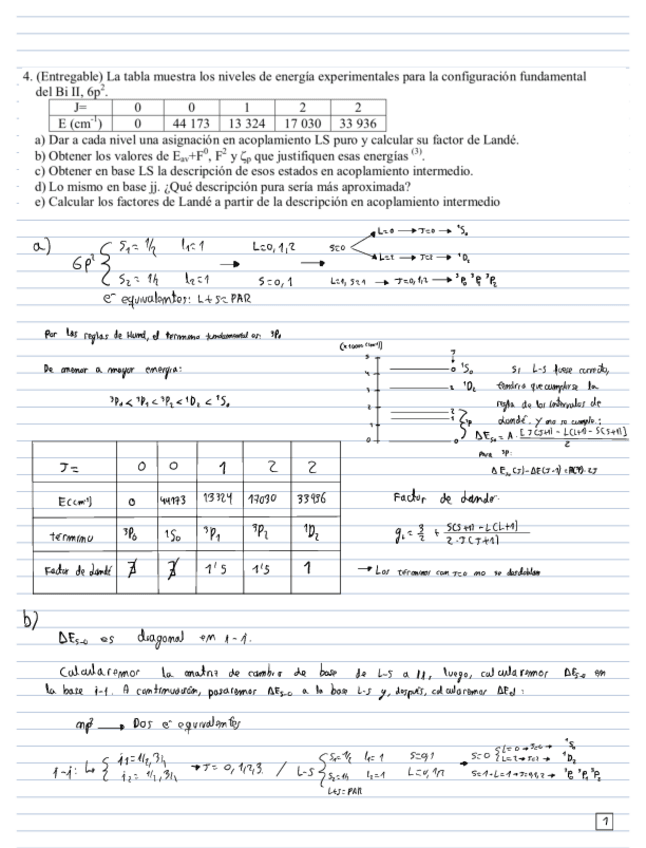 4. (Entregable) La tabla muestra los niveles de energía experimentales para la configuración fundamental
del Bi II, 6p².
J= 0 0 1 2 2
E (cm⁻¹) 0 44 173 13 324 17 030 33 936
a) Dar a cada nivel una asignación en acoplamiento LS puro y calcular su factor de Landé.
b) Obtener los valores de Eav+F⁰, F² y ζp que justifiquen esas energías ⁽³⁾.
c) Obtener en base LS la descripción de esos estados en acoplamiento intermedio.
d) Lo mismo en base jj. ¿Qué descripción pura sería más aproximada?
e) Calcular los factores de Landé a partir de la descripción en acoplamiento intermedio
L=0 → J=0 → ¹S₀
a) 6p² { S₁ = 1/2 l₁=1 L=0,1,2 S=0
L=2 → J=2 → ¹D₂
S₂ = 1/2 l₂=1 → S=0,1 → L=1, S=1 → J=0,1,2 → ³P₀ ³P₁ ³P₂
e⁻ equivalentes: L+S=PAR
Por las reglas de Hund, el termino fundamental es: ³P₀
De menor a mayor energia:
³P₀ < ³P₁ < ³P₂ < ¹D₂ < ¹S₀
Si L-S fuese correcto,
tendria que cumplirse la
regla de los intervalos de
Landé. Y no se cumple:
ΔEs₀ = A · [J(J+1) - L(L+1) - S(S+1)] / 2
Para ³P:
J= 0 0 1 2 2
E(cm⁻¹) 0 44173 13324 17030 33936
término ³P₀ ¹S₀ ³P₁ ³P₂ ¹D₂
Factor de Landé ∄ ∄ 1'5 1'5 1
Factor de Landé:
gL = 3/2 + S(S+1) - L(L+1) / 2·J(J+1)
→ Los términos con J=0 no se desdoblan
b)
ΔEs-o es diagonal en j-j.
Calcularemos la matriz de cambio de base de L-S a jj, luego, calcularemos ΔEs-o en
la base j-j. A continuación, pasaremos ΔEs-o a la base L-S y, después, calcularemos ΔEel:
np² → Dos e⁻ equivalentes
j-j: { j₁=1/2, 3/2 j₂=1/2, 3/2 → J= 0,1,2,3. / L-S { S₁=1/2 l₁=1 S=0,1
S₂=1/2 l₂=1 L=0,1,2
S=0 { L=0 → J=0 → ¹S₀
L=2 → J=2 → ¹D₂
S=1 → L=1 → J=0,1,2 → ³P₀ ³P₁ ³P₂
L+S=PAR
1